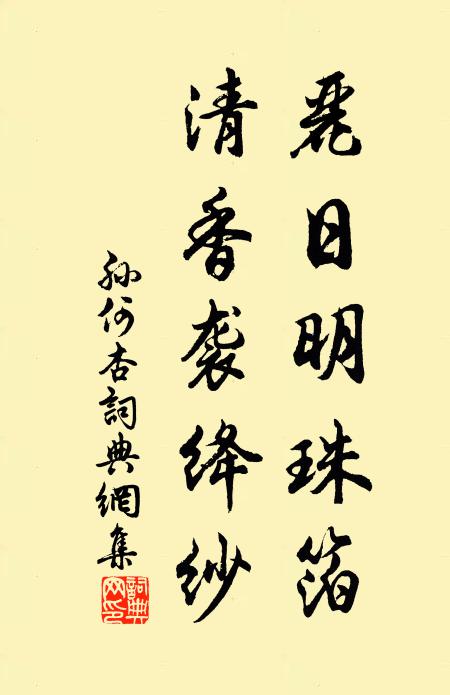 麗日明珠箔
清香袭绛紗
孫何杏詞典網集
詞典網印